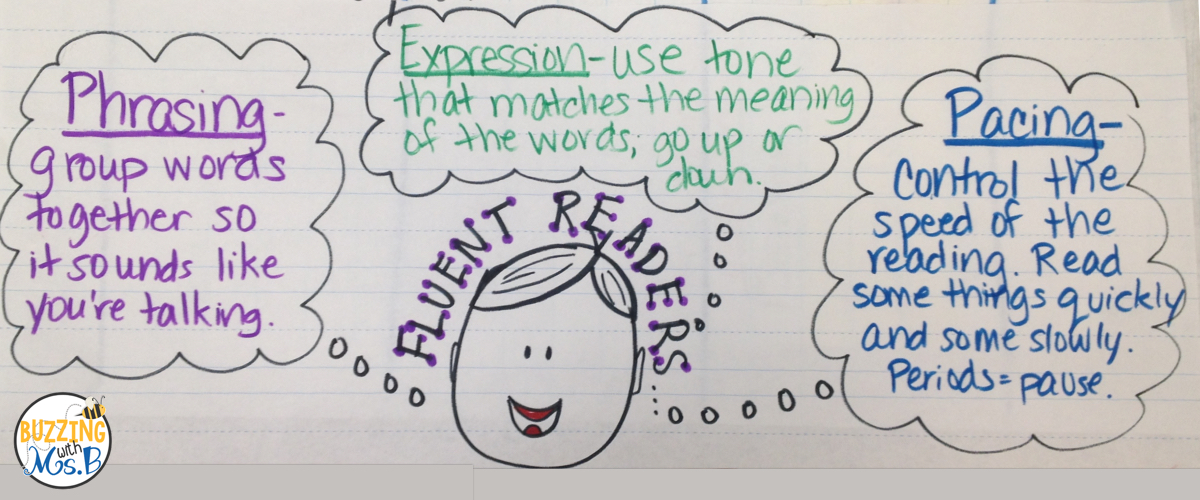 Phrasing-
group words
together so
it sounds like
you're talking.
Expression-use tone
that matches the meaning
of the words; go up or
down.
Pacing-
Control the
speed of the
reading. Read
some things quickly
and some slowly.
Periods = pause.
FLUENT READERS
BUZZING
with
Ms.B